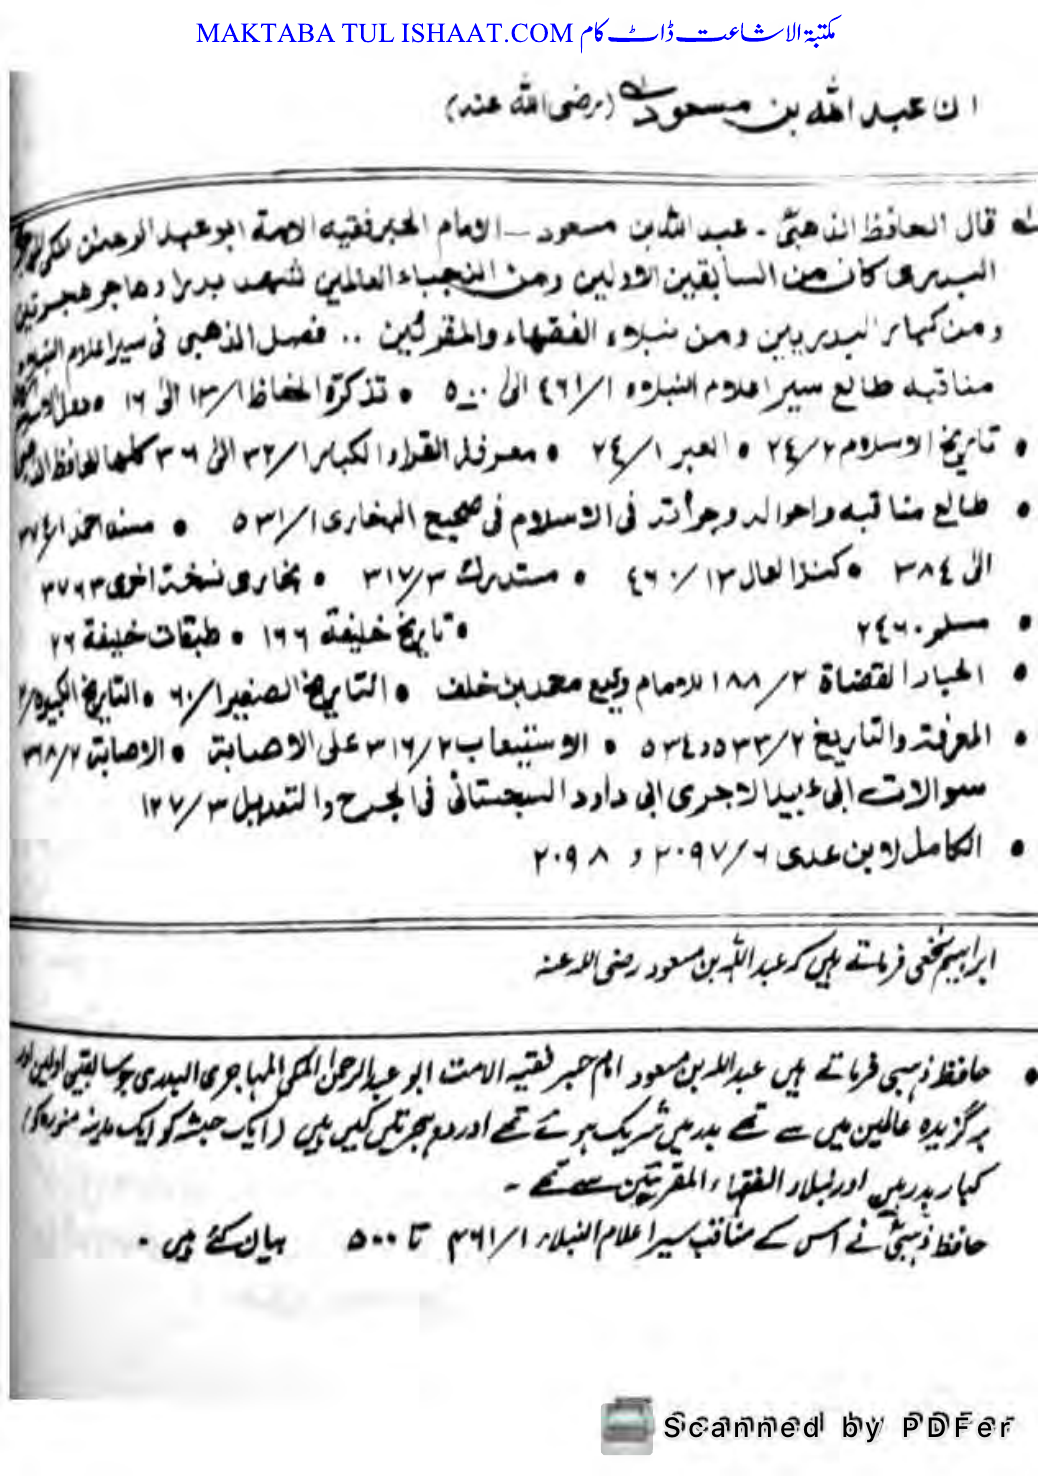 MAKTABA TUL ISHAAT.COM مکتبۃ الاشاعت ڈاٹ کام
ان عبد الله بن مسعود (رضی الله عنه)
قال الحافظ الذهبیؒ ـ عبد الله بن مسعود ـ الامام الحبر فقیه الامة ابو عبد الرحمان المکی
البدری کان من السابقین الاولین ومن النجباء العالمین شهد بدرا وهاجر هجرتین
ومن کبار البدریین ومن نبلاء الفقهاء والمقرئین .. فصل الذهبی فی سیر اعلام النبلاء
مناقبه طالع سیر اعلام النبلاء ۴۶۱/۱ الی ۵۰۰ • تذکرة الحفاظ ۱۳/۱ الی ۱۶ •
• تاریخ الاسلام ۲۴/۲ • العبر ۲۴/۱ • معرفة القراء الکبار ۳۲/۱ الی ۳۶ کلها للحافظ
• طالع مناقبه واحواله وجرأته فی الاسلام فی صحیح البخاری ۵۳۱/۱ • مسند احمد ۳۷۴/۱
الی ۳۸۴ • کنز العال ۴۶۰/۱۳ • مستدرك ۳۱۷/۳ • بخاری نسخة اخری ۳۷۶۳
• مسلم ۲۴۶۰ • تاریخ خلیفة ۱۶۶ • طبقات خلیفة ۲۶
• اخبار القضاة ۱۸۸/۲ للامام وکیع محمد بن خلف • التاریخ الصغیر ۶۰/۱ • التاریخ الکبیر
• المعرفة والتاریخ ۵۳۳/۲ و ۵۳۴ • الاستیعاب ۳۱۶/۲ علی الاصابة • الاصابة ۳۶۸/۲
سوالات ابی عبید الاجری ابی داود السجستانی فی الجرح والتعدیل ۱۲۷/۳
• الکامل لابن عدی ۲۰۹۷/۶ و ۲۰۹۸
ابراہیم نخعی فرماتے ہیں کہ عبد اللہ بن مسعود رضی اللہ عنہ
• حافظ ذہبی فرماتے ہیں عبد اللہ بن مسعود امام حبر فقیہ الامت ابو عبد الرحمن المکی المہاجری البدری جو سابقین اولین اور
برگزیدہ عالمین میں سے تھے بدر میں شریک ہوئے تھے اور دو ہجرتیں کیں ہیں (ایک حبشہ کو ایک مدینہ منورہ کو)
کبار بدریین اور نبلاء الفقہاء المقرئین سے تھے ۔
حافظ ذہبیؒ نے اس کے مناقب سیر اعلام النبلاء ۴۶۱/۱ تا ۵۰۰ بیان کئے ہیں ۔
Scanned by PDFer